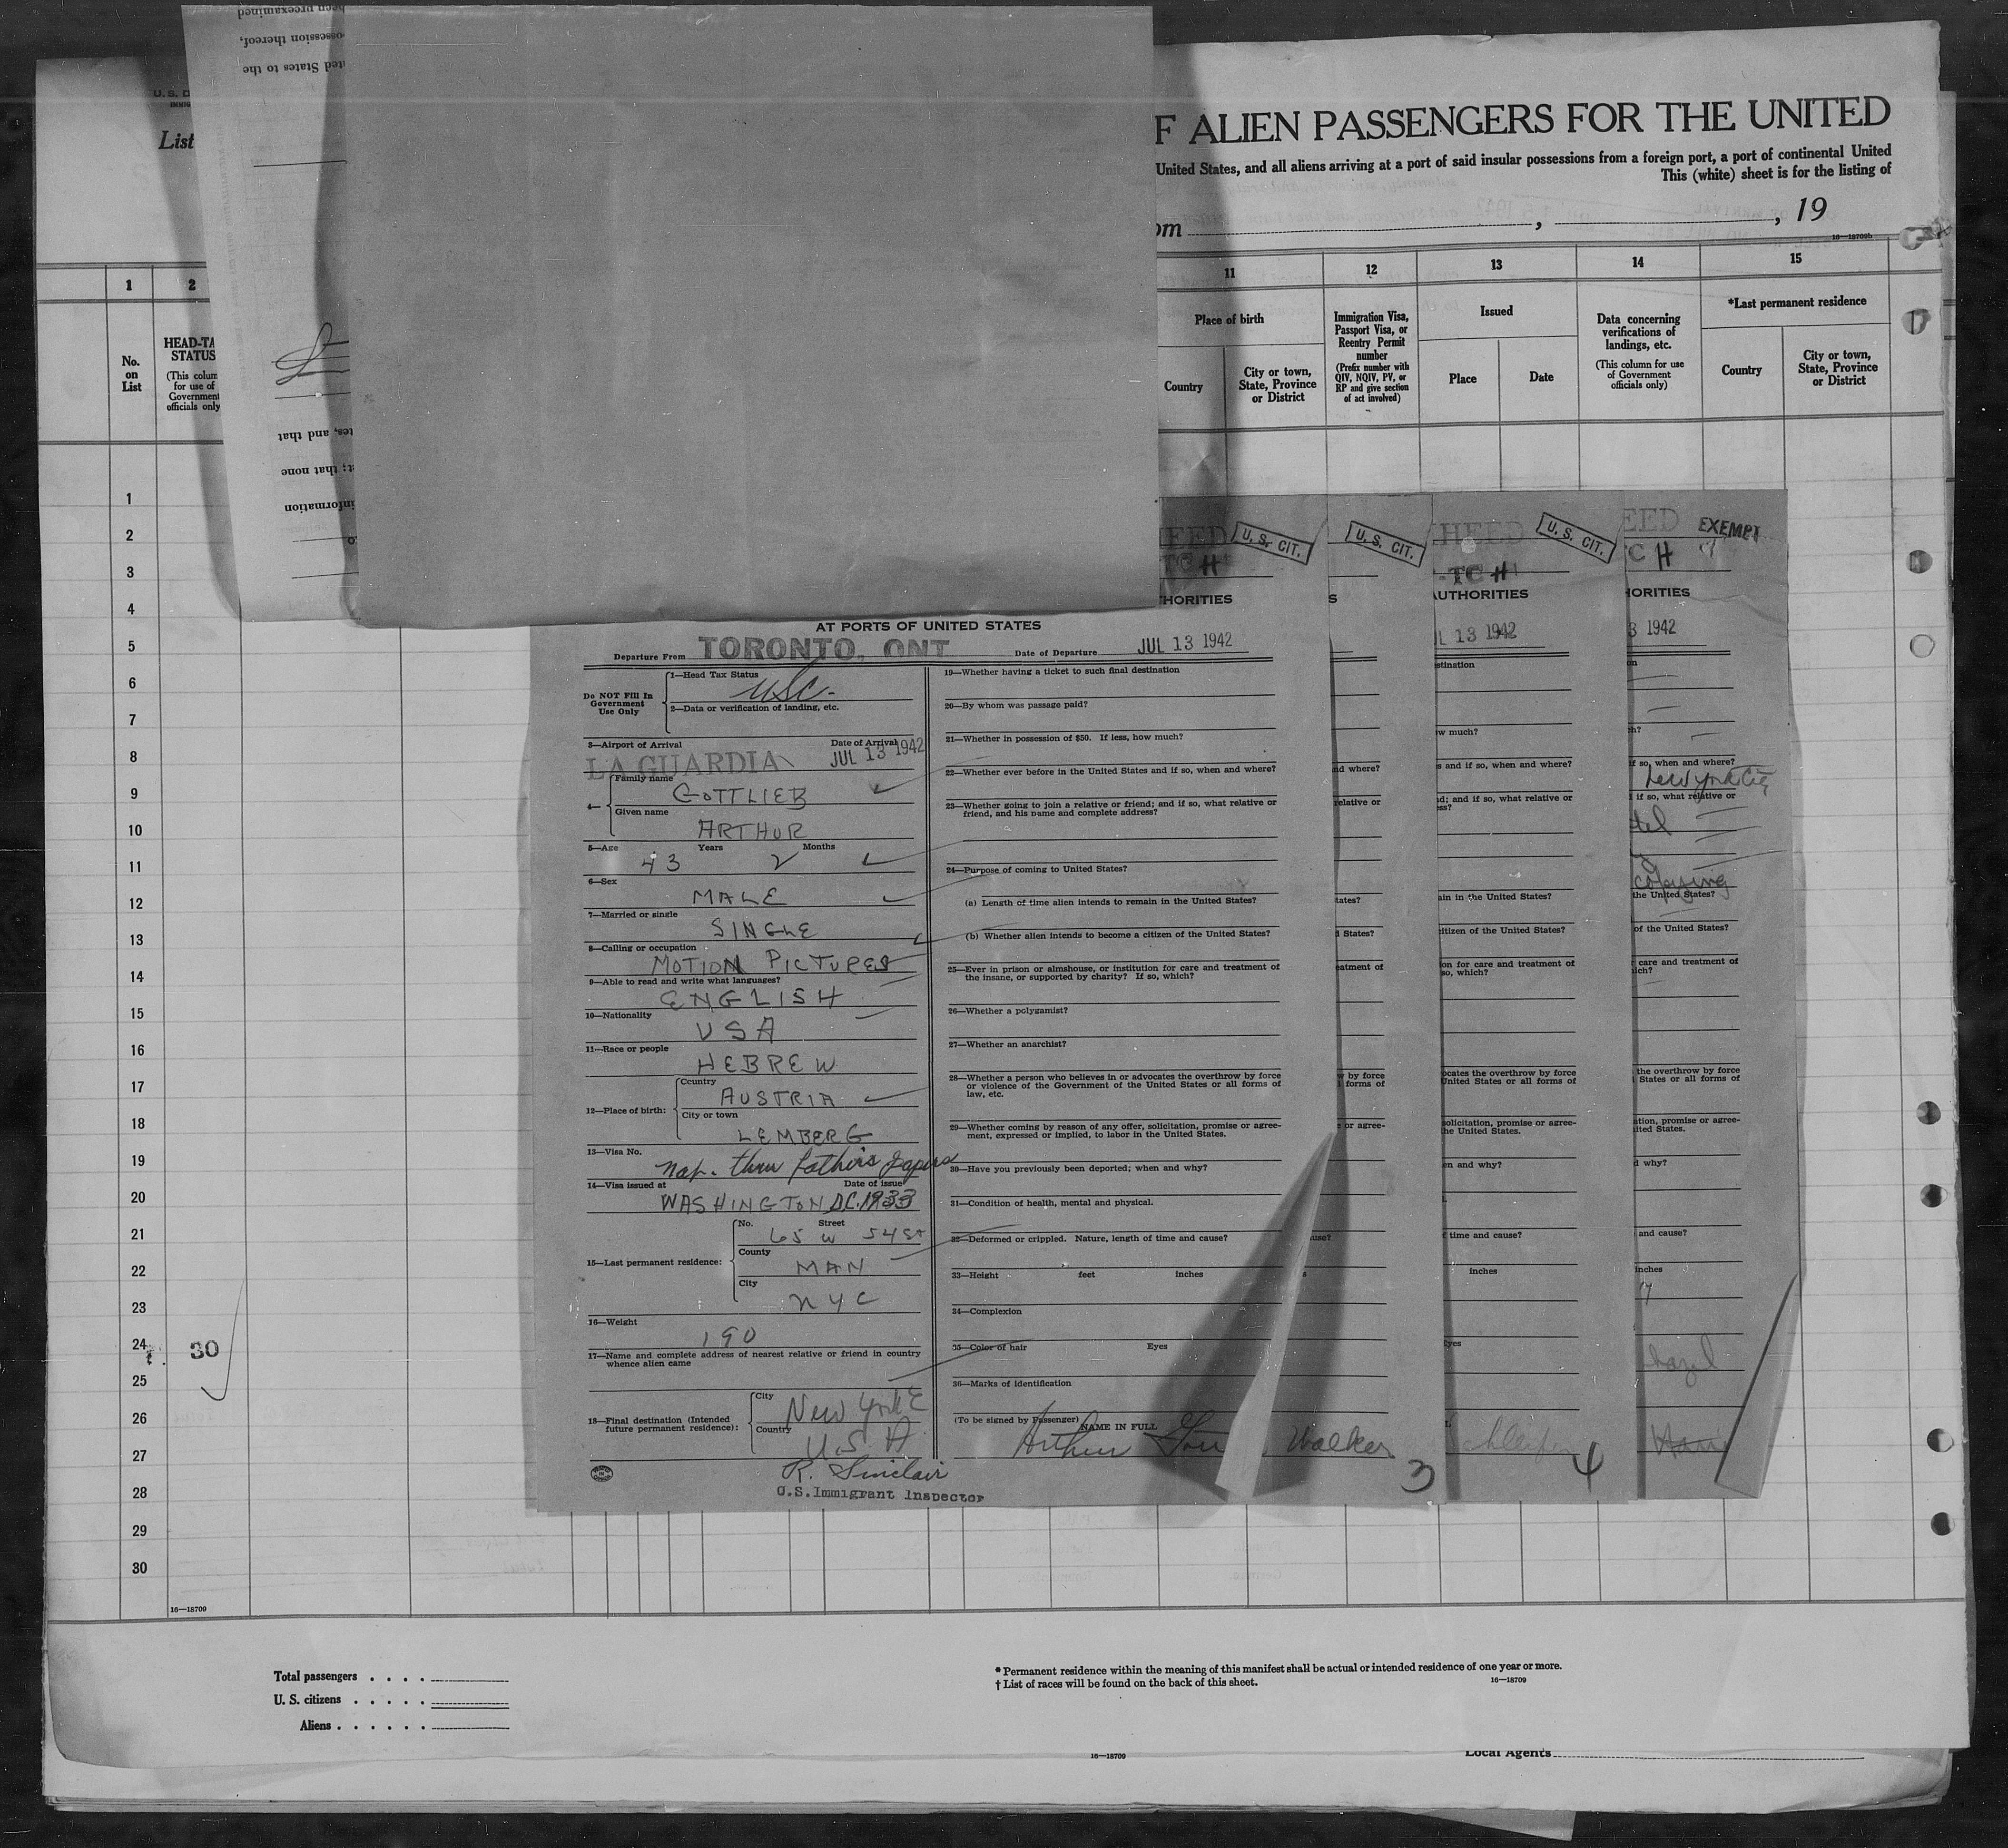 U. S. D
List
F ALIEN PASSENGERS FOR THE UNITED
United States, and all aliens arriving at a port of said insular possessions from a foreign port, a port of continental United
This (white) sheet is for the listing of
om , , 19
16—18709b
been preexamined
ossession thereof,
ted States to the
tes, and that
t; that none
information
1 2 11 12 13 14 15
No. on List
HEAD-TA
STATUS
(This colum
for use of
Government
officials only
Place of birth
Country
City or town, State, Province or District
Immigration Visa, Passport Visa, or Reentry Permit number
(Prefix number with QIV, NQIV, PV, or RP and give section of act involved)
Issued
Place
Date
Data concerning verifications of landings, etc.
(This column for use of Government officials only)
*Last permanent residence
Country
City or town, State, Province or District
1
2
3
4
5
6
7
8
9
10
11
12
13
14
15
16
17
18
19
20
21
22
23
24
25
26
27
28
29
30
30
16—18709
HORITIES
AT PORTS OF UNITED STATES
Departure From TORONTO, ONT Date of Departure JUL 13 1942
Do NOT Fill In Government Use Only
1—Head Tax Status
USC.
2—Data or verification of landing, etc.
3—Airport of Arrival Date of Arrival
LA GUARDIA JUL 13 1942
4— Family name
GOTTLIEB
Given name
ARTHUR
5—Age Years Months
43 2
6—Sex
MALE
7—Married or single
SINGLE
8—Calling or occupation
MOTION PICTURES
9—Able to read and write what languages?
ENGLISH
10—Nationality
USA
11—Race or people
HEBREW
12—Place of birth:
Country
AUSTRIA
City or town
LEMBERG
13—Visa No.
nat. thru father's papers
14—Visa issued at Date of issue
WASHINGTON D.C. 1933
15—Last permanent residence:
No. Street
65 W 54 St
County
MAN
City
NYC
16—Weight
190
17—Name and complete address of nearest relative or friend in country
whence alien came
18—Final destination (Intended
future permanent residence):
City
New York
Country
U.S.A.
R. Sinclair
U.S. Immigrant Inspector
19—Whether having a ticket to such final destination
20—By whom was passage paid?
21—Whether in possession of $50. If less, how much?
22—Whether ever before in the United States and if so, when and where?
23—Whether going to join a relative or friend; and if so, what relative or
friend, and his name and complete address?
24—Purpose of coming to United States?
(a) Length of time alien intends to remain in the United States?
(b) Whether alien intends to become a citizen of the United States?
25—Ever in prison or almshouse, or institution for care and treatment of
the insane, or supported by charity? If so, which?
26—Whether a polygamist?
27—Whether an anarchist?
28—Whether a person who believes in or advocates the overthrow by force
or violence of the Government of the United States or all forms of
law, etc.
29—Whether coming by reason of any offer, solicitation, promise or agree-
ment, expressed or implied, to labor in the United States.
30—Have you previously been deported; when and why?
31—Condition of health, mental and physical.
32—Deformed or crippled. Nature, length of time and cause?
33—Height feet inches
34—Complexion
35—Color of hair Eyes
36—Marks of identification
(To be signed by Passenger)
NAME IN FULL
Arthur
U. S. CIT.
U. S. CIT.
Walker
3
U. S. CIT.
TC H
AUTHORITIES
13 1942
stination
w much?
s and if so, when and where?
d; and if so, what relative or
ain in the United States?
itizen of the United States?
on for care and treatment of
so, which?
ocates the overthrow by force
United States or all forms of
solicitation, promise or agree-
he United States.
en and why?
time and cause?
inches
4
EXEMPT
C H
HORITIES
3 1942
if so, when and where?
New York City
if so, what relative or
the United States?
of the United States?
care and treatment of
ich?
the overthrow by force
States or all forms of
ation, promise or agree-
ited States.
d why?
and cause?
inches
hazel
Total passengers . . . .
U. S. citizens . . . . .
Aliens . . . . . .
* Permanent residence within the meaning of this manifest shall be actual or intended residence of one year or more.
† List of races will be found on the back of this sheet.
16—18709
16—18709
Local Agents